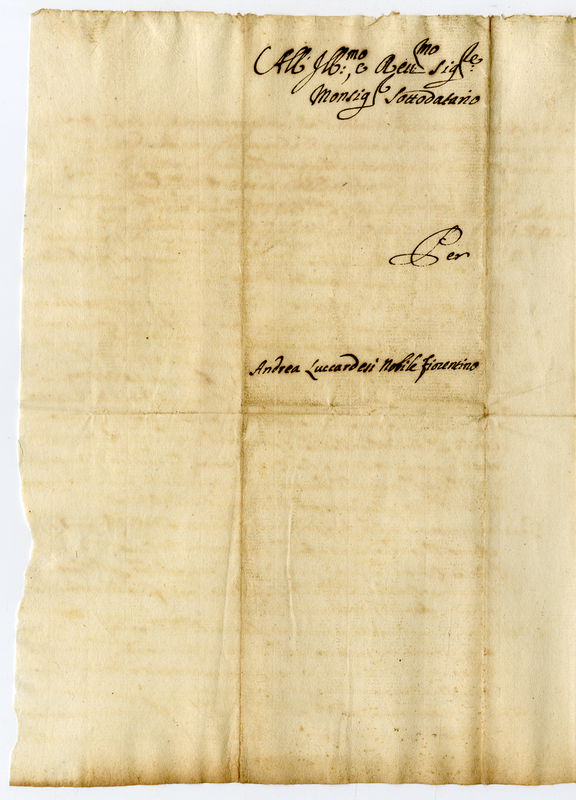 All' Ill:mo, e Reu.mo Sig.re
Monsig.r Sottodatario
Per
Andrea Luccardesi Nobile Fiorentino